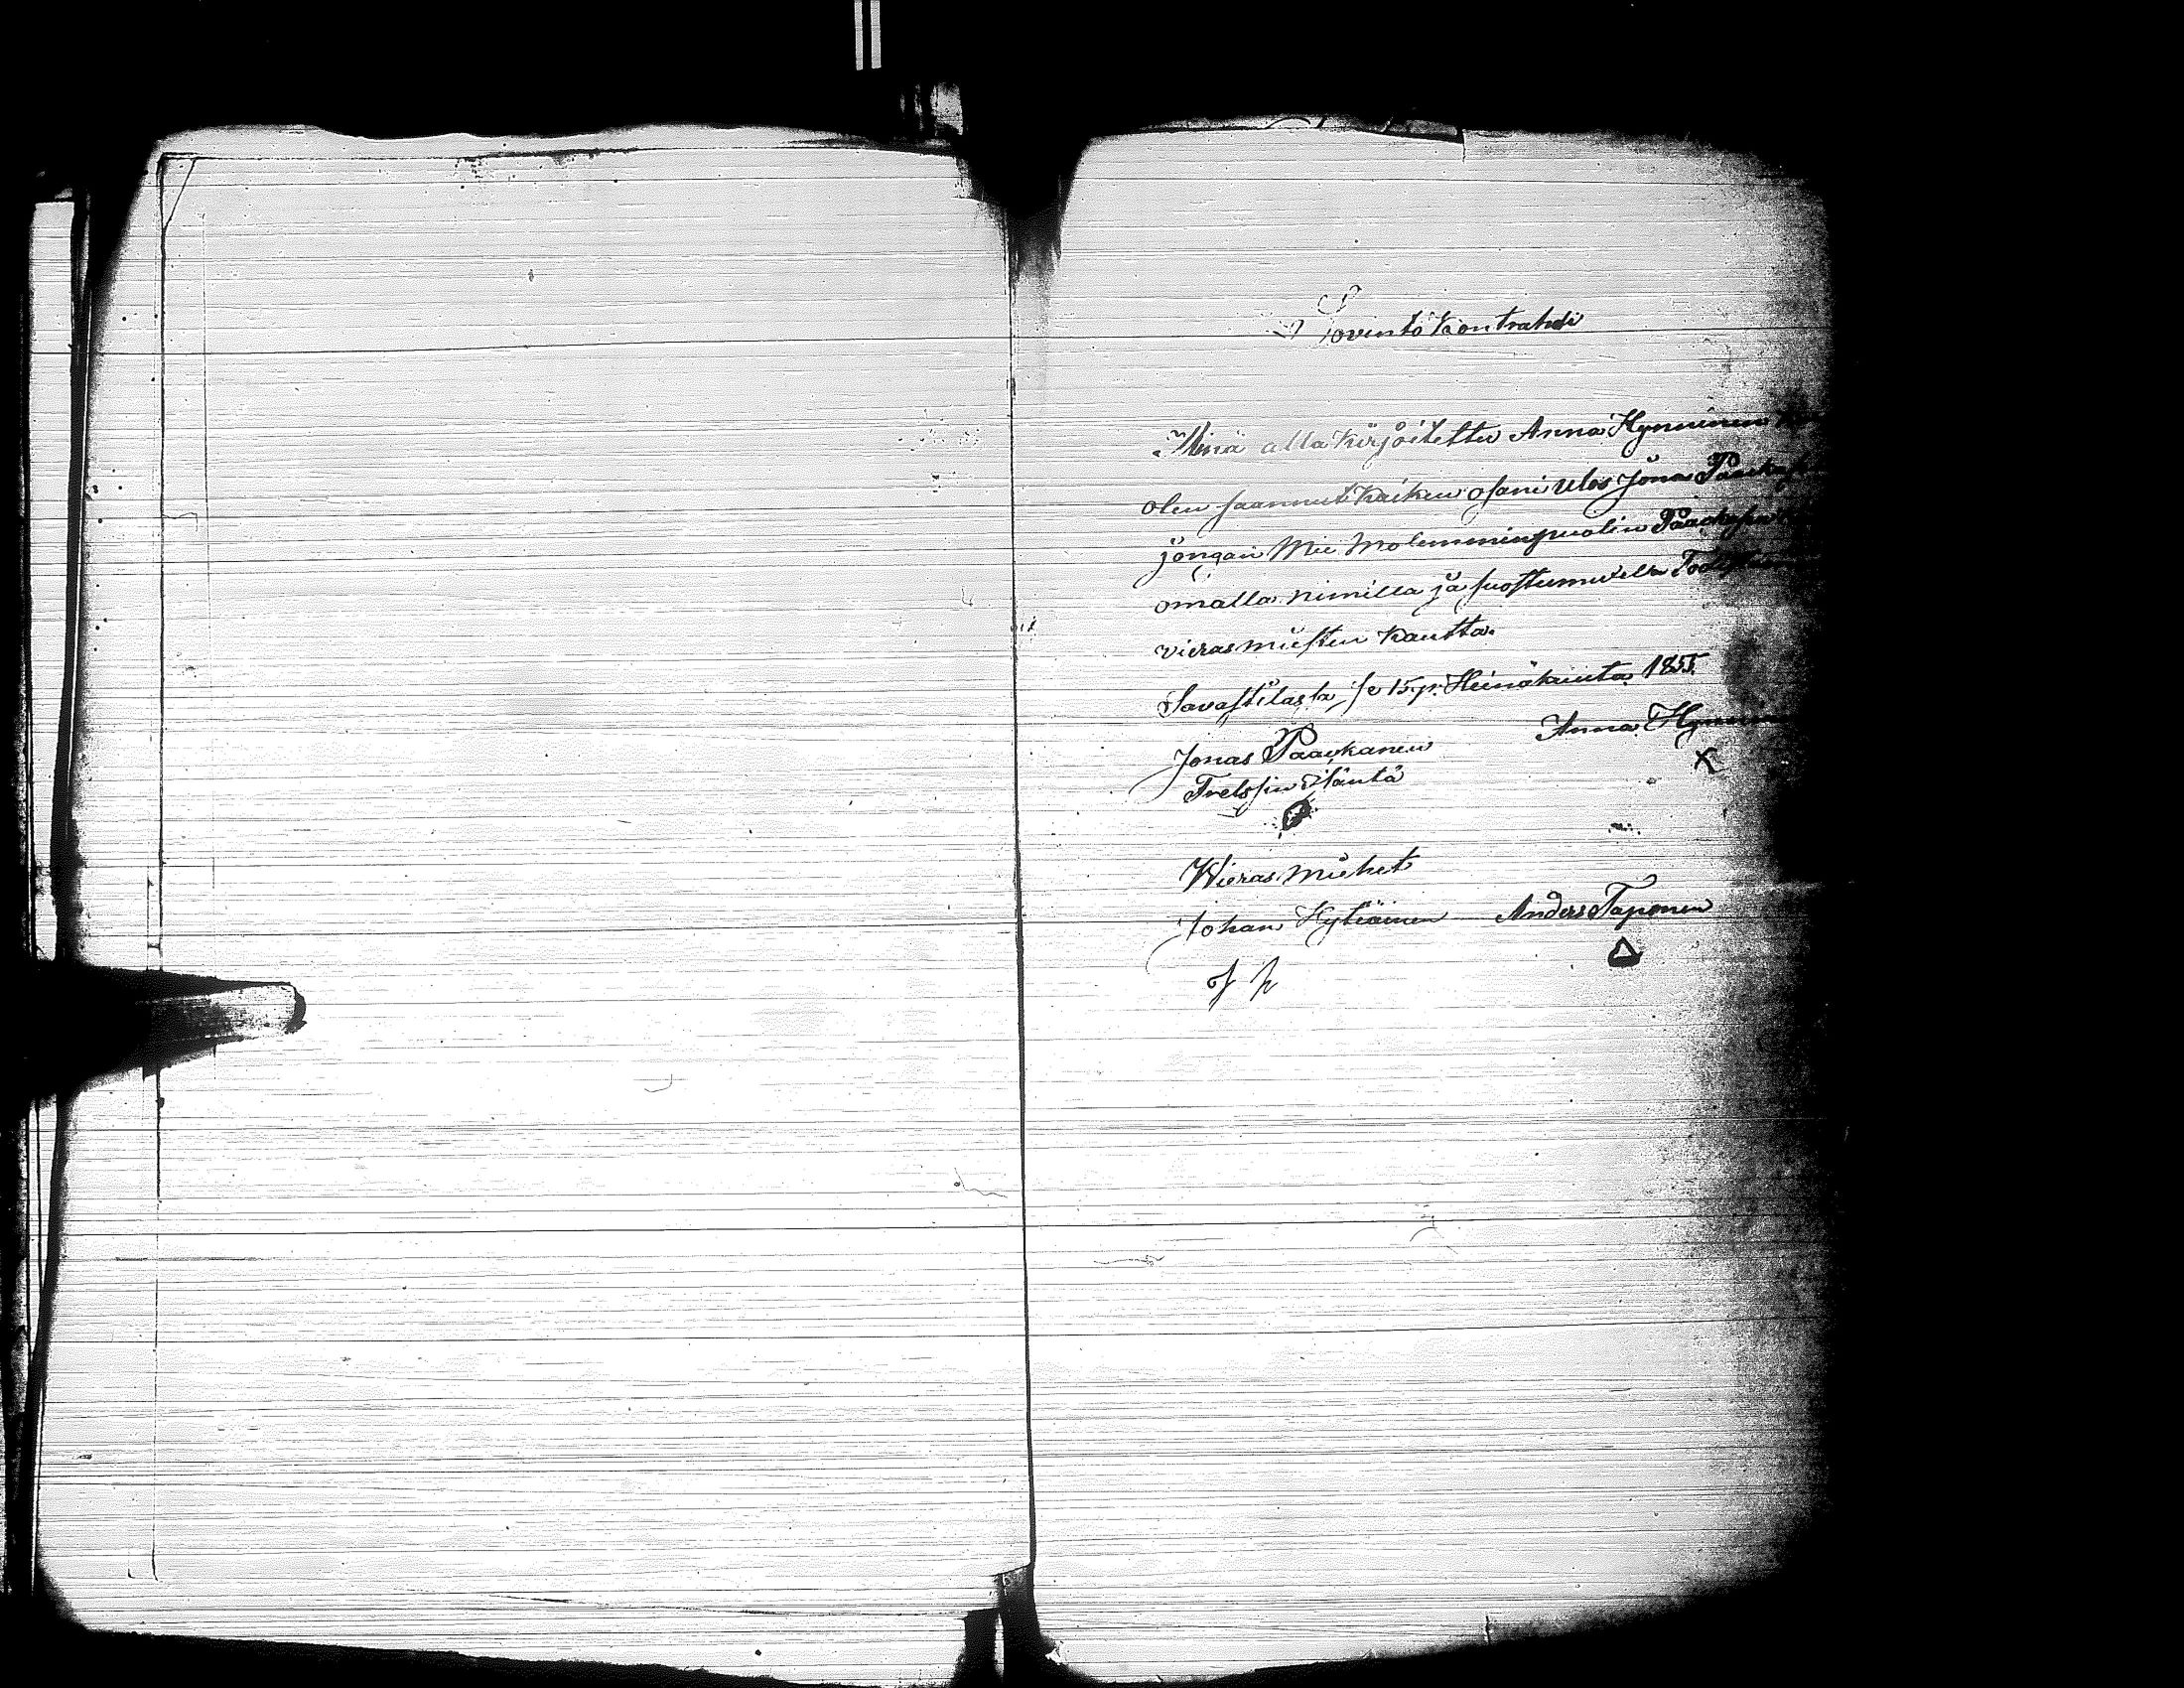 Sovinto Kontrahti
Minä alla kirjoitettu Anna Hynninen
olen saannut kaiken osani ulos Jona
jongan Mie Molemminpuolin
omalla nimillä ja suostumuxella
vierasmiesten kautta.
Savastilasta, se 15. p. Heinäkuuta 1855.
Anna
Jonas Paavkanen
X
Wieras miehet
Johan Hytiäinen Anders Taponen